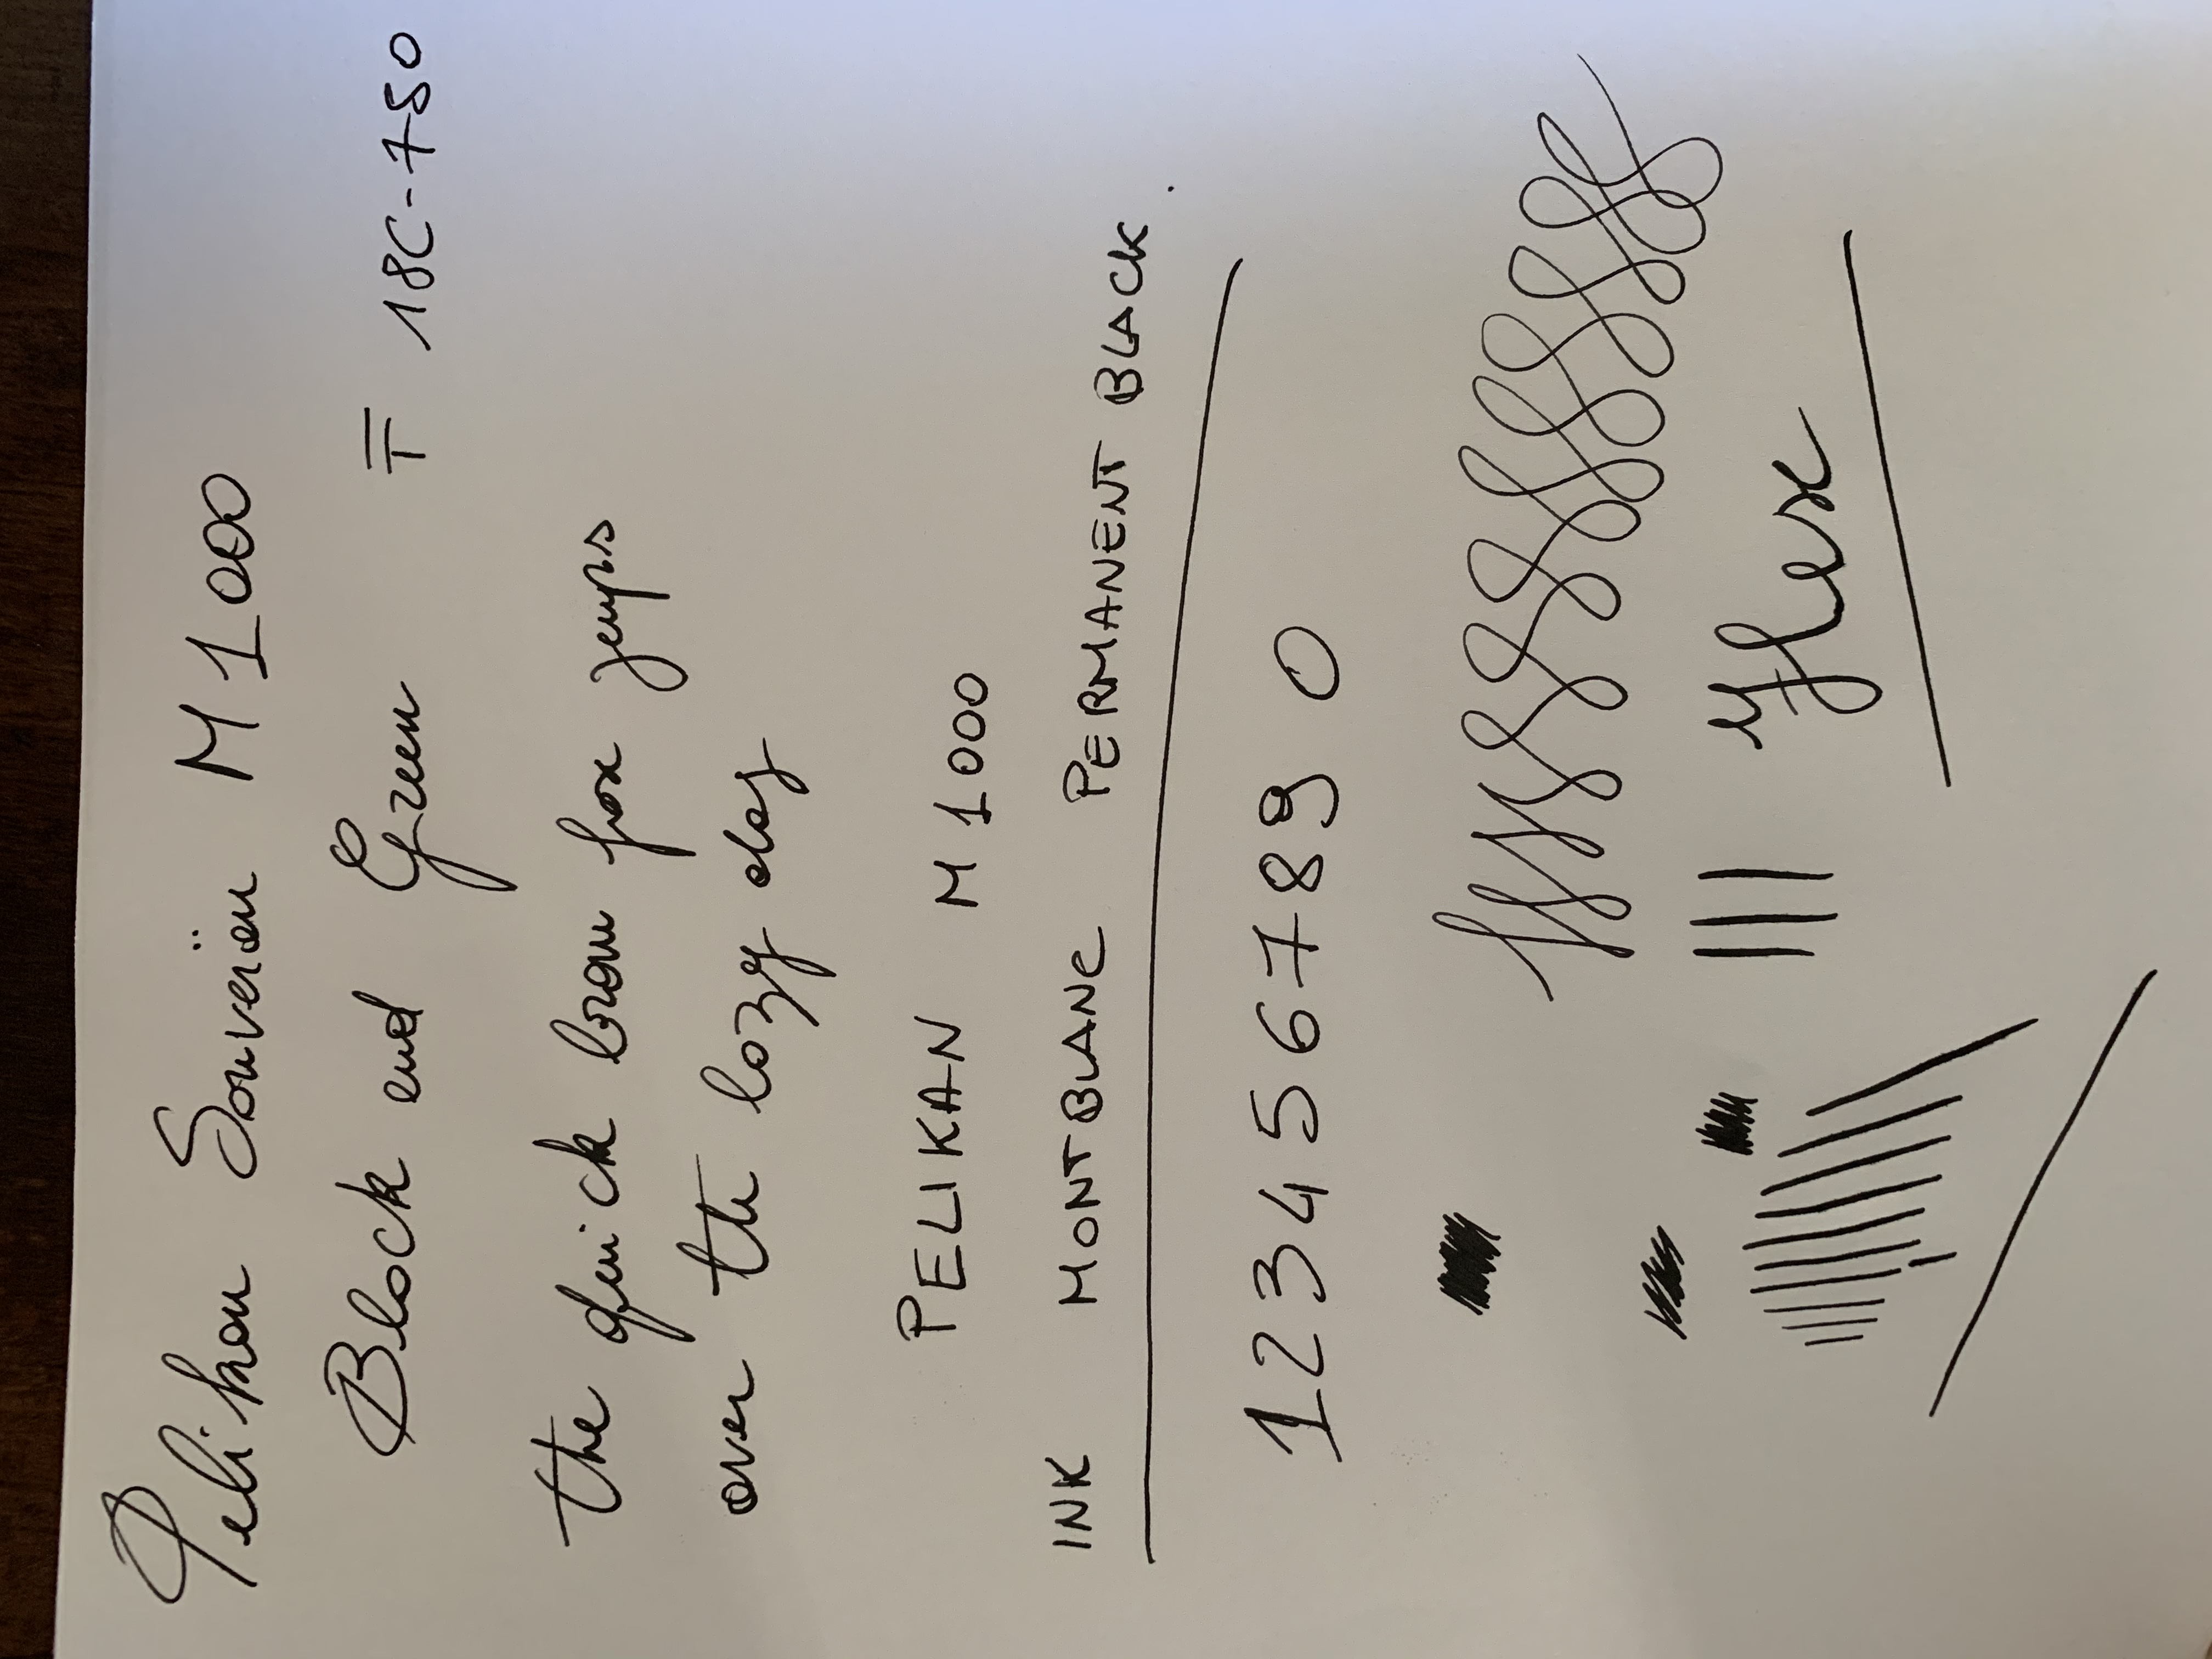 Pelikan Souverän M1000
Black and Green F 18C-750
the quick brown fox jumps
over the lazy dog
PELIKAN M1000
INK MONTBLANC PERMANENT BLACK.
1 2 3 4 5 6 7 8 9 0
flex